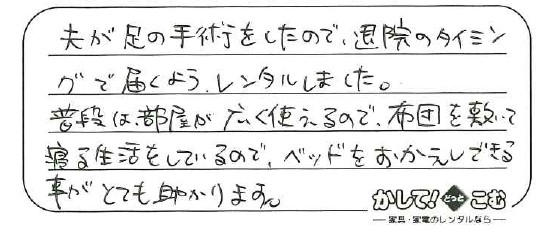 夫が足の手術をしたので、退院のタイミン
グで届くよう、レンタルしました。
普段は部屋が広く使えるので、布団を敷いて
寝る生活をしているので、ベッドをおかえしできる
事がとても助かります。
かして!どっとこむ
家具・家電のレンタルなら